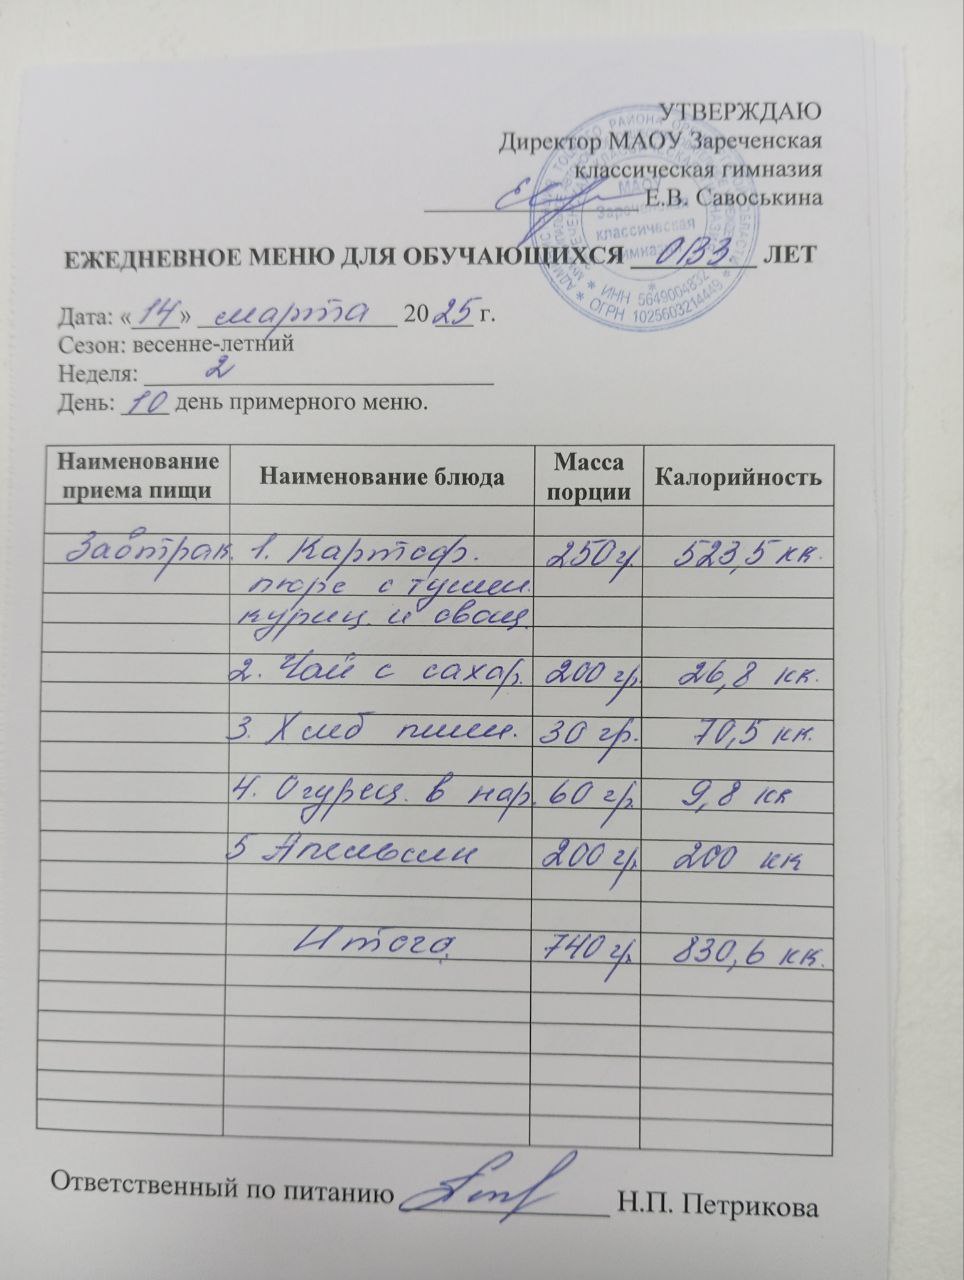 УТВЕРЖДАЮ
Директор МАОУ Зареченская
классическая гимназия
Е.В. Савоськина
МАОУ Зареченская классическая гимназия
ИНН 5649004832
ОГРН 1025603214449
ЕЖЕДНЕВНОЕ МЕНЮ ДЛЯ ОБУЧАЮЩИХСЯ ОВЗ ЛЕТ
Дата: «14» марта 2025 г.
Сезон: весенне-летний
Неделя: 2
День: 10 день примерного меню.
Наименование приема пищи Наименование блюда Масса порции Калорийность
Завтрак. 1. Картоф. 250г. 523,5 кк.
пюре с тушен.
куриц. и овощ.
2. Чай с сахар. 200 гр. 26,8 кк.
3. Хлеб пшен. 30 гр. 70,5 кк.
4. Огурец. в нар. 60 гр. 9,8 кк
5 Апельсин 200 гр. 200 кк
Итого. 740 гр. 830,6 кк.
Ответственный по питанию Н.П. Петрикова